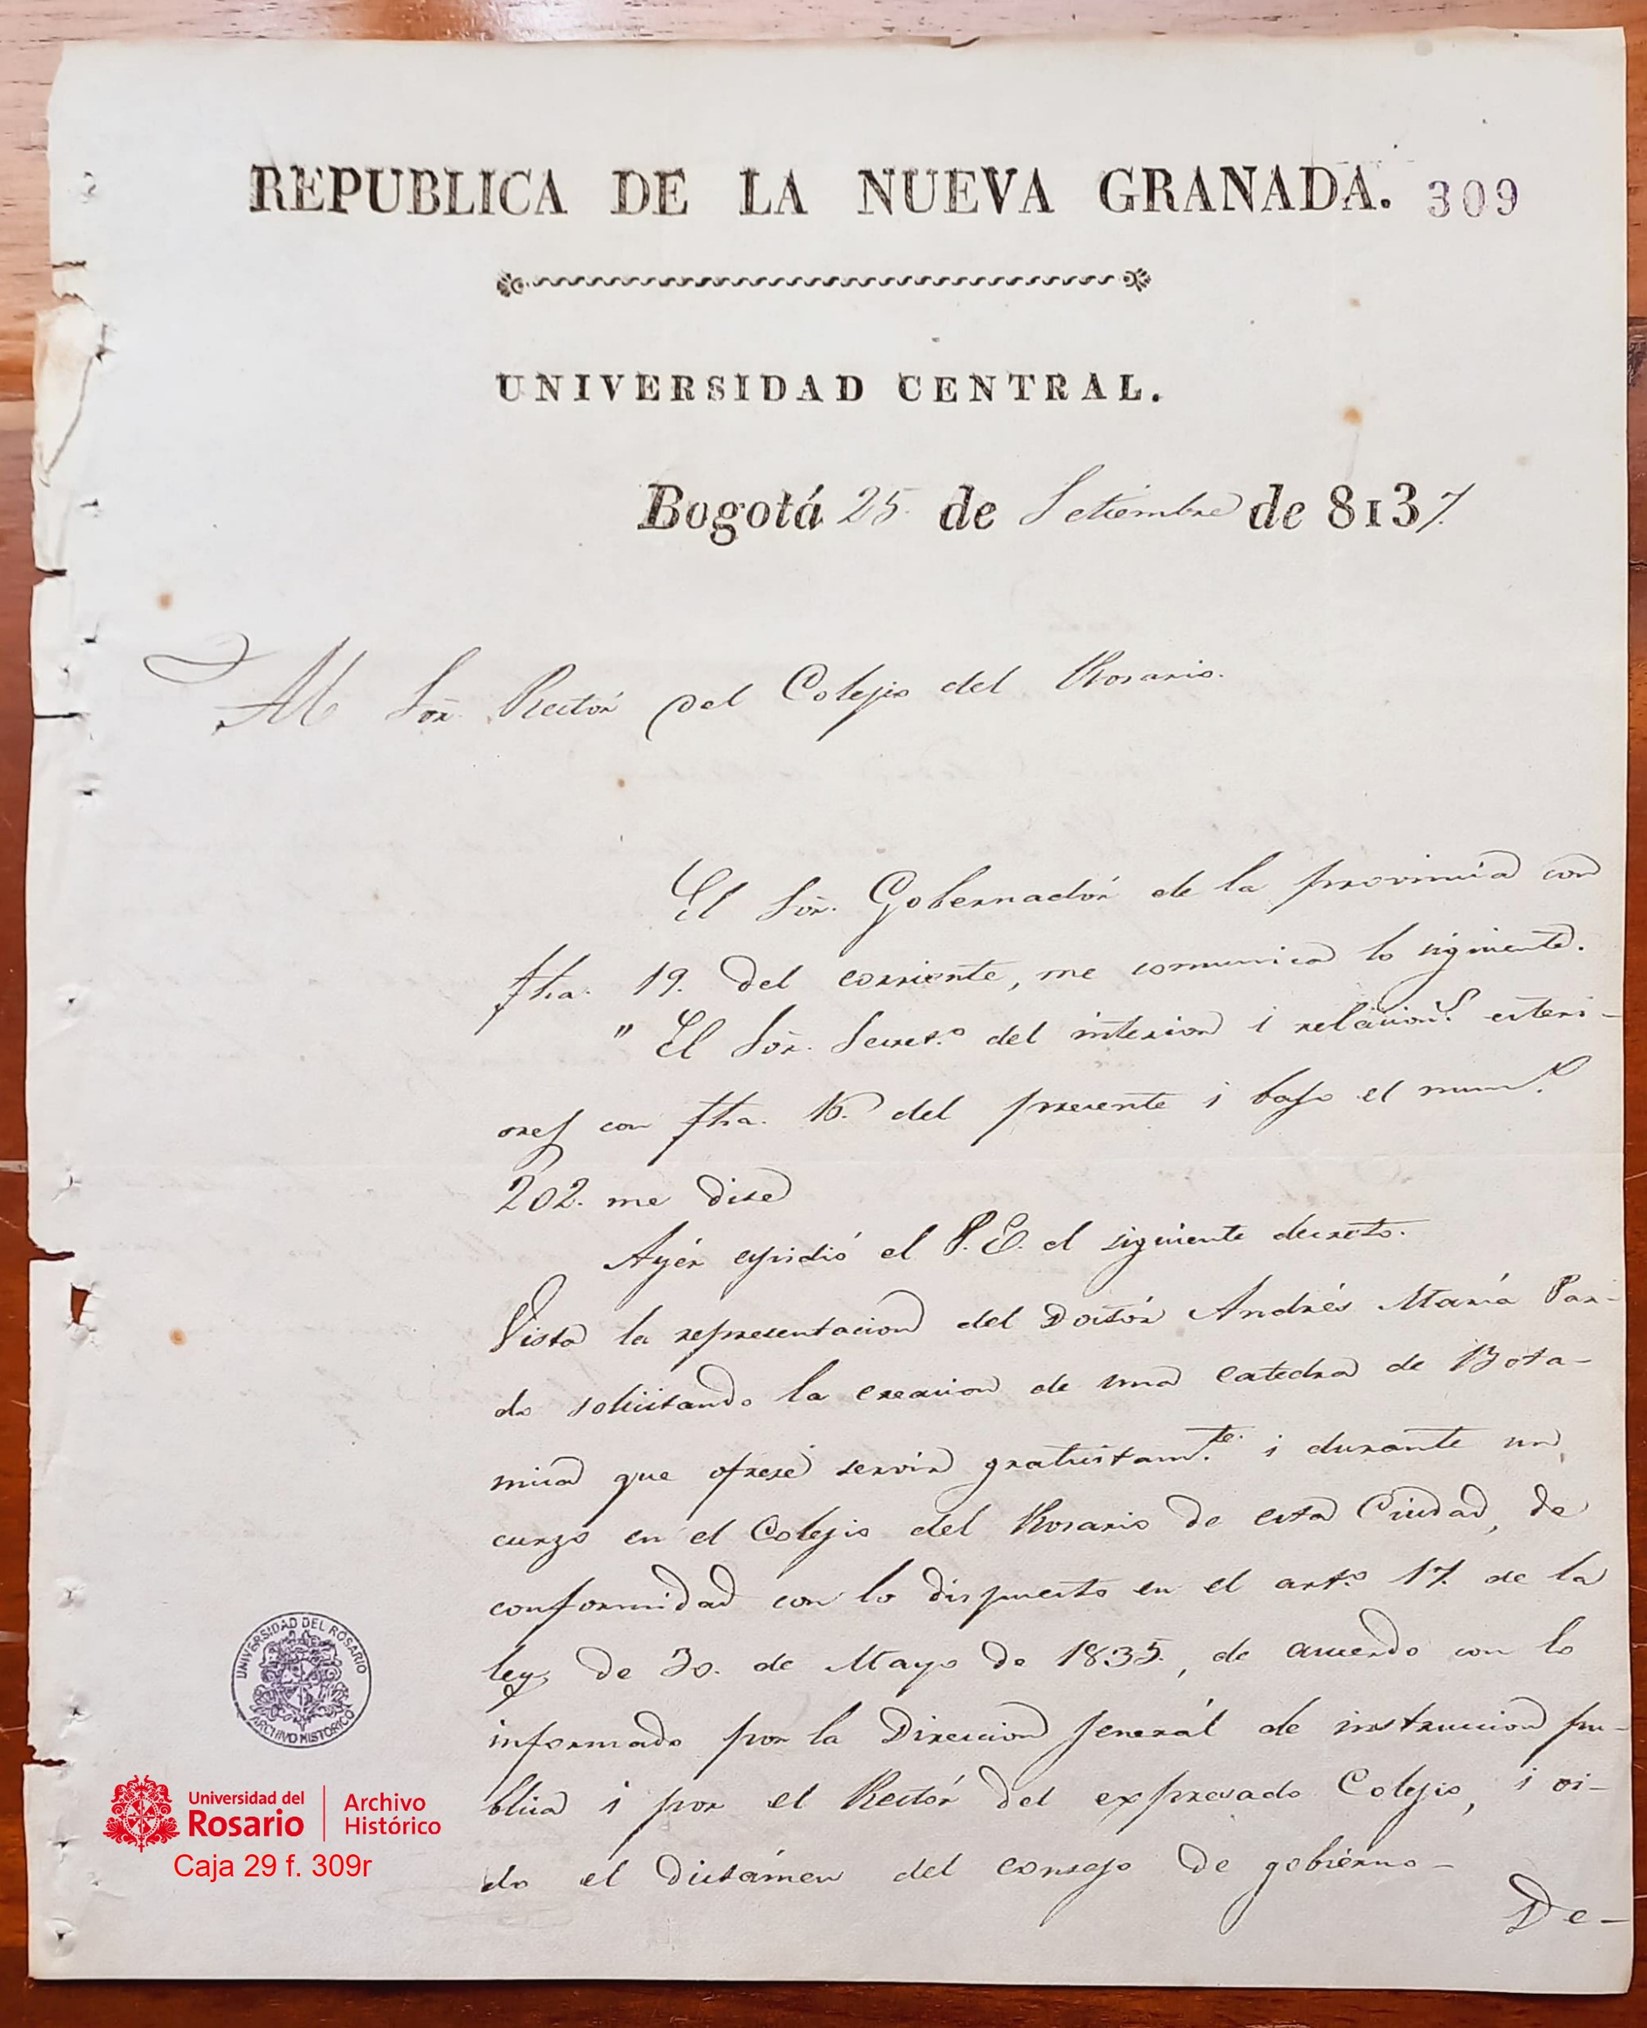 REPUBLICA DE LA NUEVA GRANADA. 309
UNIVERSIDAD CENTRAL.
Bogotá 25 de Setiembre de 8137.
Al Sor. Rectór del Colejio del Rosario.
El Sor. Gobernadór de la provincia con
fha. 19. del corriente, me comunica lo siguiente.
" El Sor. Secret.o del interior i relacion.s esteri-
ores con fha. 16. del presente i bajo el num.o
202. me dice
Ayér espidió el P. E. el siguiente decreto.
Vista la representacion del Doctór Andrés María Par-
do solicitando la creacion de una catedra de Bota-
nica que ofrece servir gratuitam.te i durante un
curzo en el Colejio del Rosario de esta Ciudad, de
conformidad con lo dispuesto en el art.o 17. de la
ley de 30. de Mayo de 1835., de acuerdo con lo
informado por la Direccion jenerál de instruccion pu-
blica i por el Rectór del expresado Colejio, i oi-
do el dictámen del consejo de gobierno-
De-
UNIVERSIDAD DEL ROSARIO
ARCHIVO HISTORICO
Universidad del
Rosario
Archivo
Histórico
Caja 29 f. 309r